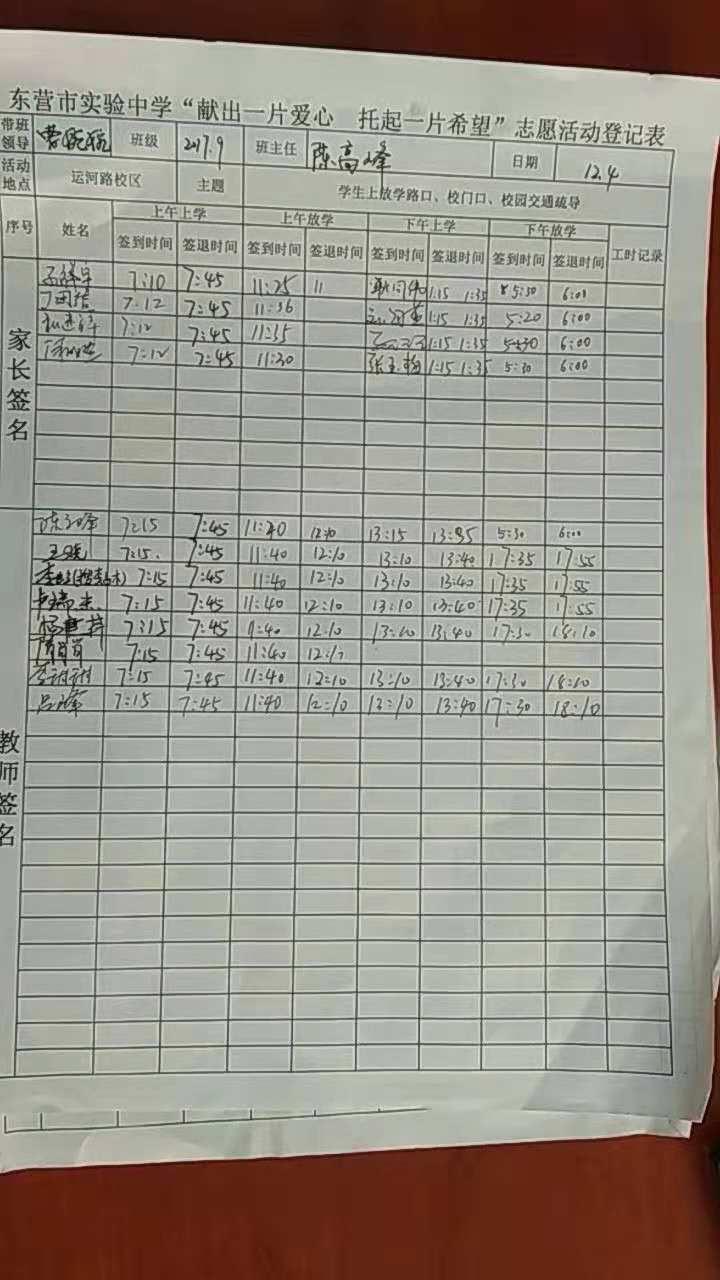 东营市实验中学“献出一片爱心 托起一片希望”志愿活动登记表
带班领导 班级 2017.9 班主任 陈高峰 日期 12.4
活动地点 运河路校区 主题 学生上放学路口、校门口、校园交通疏导
序号 姓名 上午上学 上午放学 下午上学 下午放学 工时记录
签到时间 签退时间 签到时间 签退时间 签到时间 签退时间 签到时间 签退时间
家长签名
7:10 7:45 11:25 11 1:15 1:35 5:30 6:00
7:12 7:45 11:36 1:15 1:35 5:20 6:00
7:12 7:45 11:35 1:15 1:35 5:30 6:00
7:12 7:45 11:30 张玉梅 1:15 1:35 5:30 6:00
教师签名
陈高峰 7:15 7:45 11:40 12:10 13:15 13:35 5:30 6:00
王晓 7:15. 7:45 11:40 12:10 13:10 13:40 17:35 17:55
7:15 7:45 11:40 12:10 13:10 13:40 17:35 17:55
7:15 7:45 11:40 12:10 13:10 13:40 17:35 17:55
7:15 7:45 11:40 12:10 13:10 13:40 17:30 18:10
7:15 7:45 11:40 12:1
7:15 7:45 11:40 12:10 13:10 13:40 17:30 18:10
吕峰 7:15 7:45 11:40 12:10 13:10 13:40 17:30 18:10